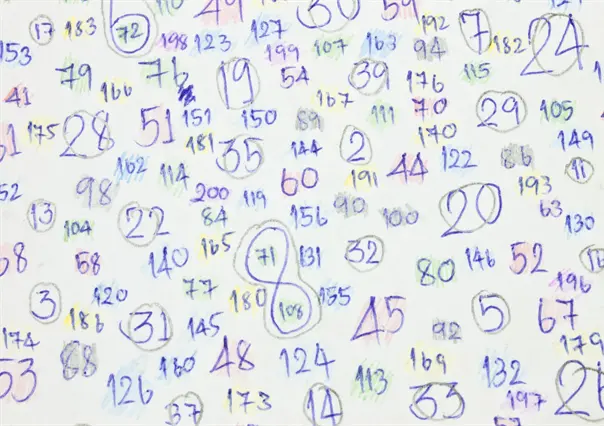 49 30 59
17 183 6 72 198 123 127 192 7 182 24
153 199 107 163 94
79 166 76 19 54 39 176 115
41 167
175 28 51 151 150 89 111 70 29 105
181 35 144 2 170 149
162 114 60 191 44 122 86 11
52 98 200 119 193
13 104 22 84 156 90 100 20 63 130
58 140 165 71 131 32 80 146 52
3 120 77 180 8 108 155 45 5 67 196
186 31 145 92 179
174 88 160 48 124 169
53 126 113 132
37 173 14 33 197